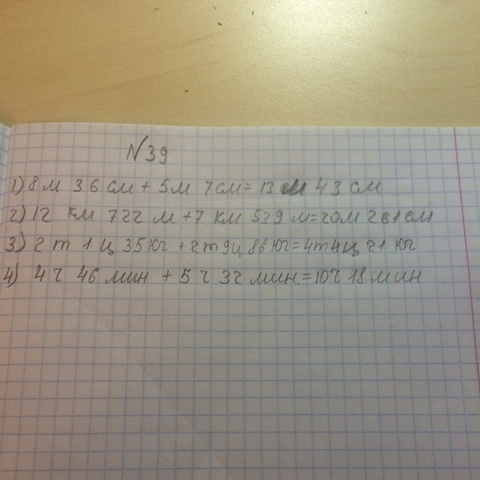 N39
1) 8 м 36 см + 5 м 7 см = 13 м 43 см
2) 12 км 722 м + 7 км 539 м = 20м 261 см
3) 2 т 1 ц 35 кг + 2 т 9 ц 86 кг = 4т 4ц 21 кг
4) 4 ч 46 мин + 5 ч 32 мин = 10ч 18 мин